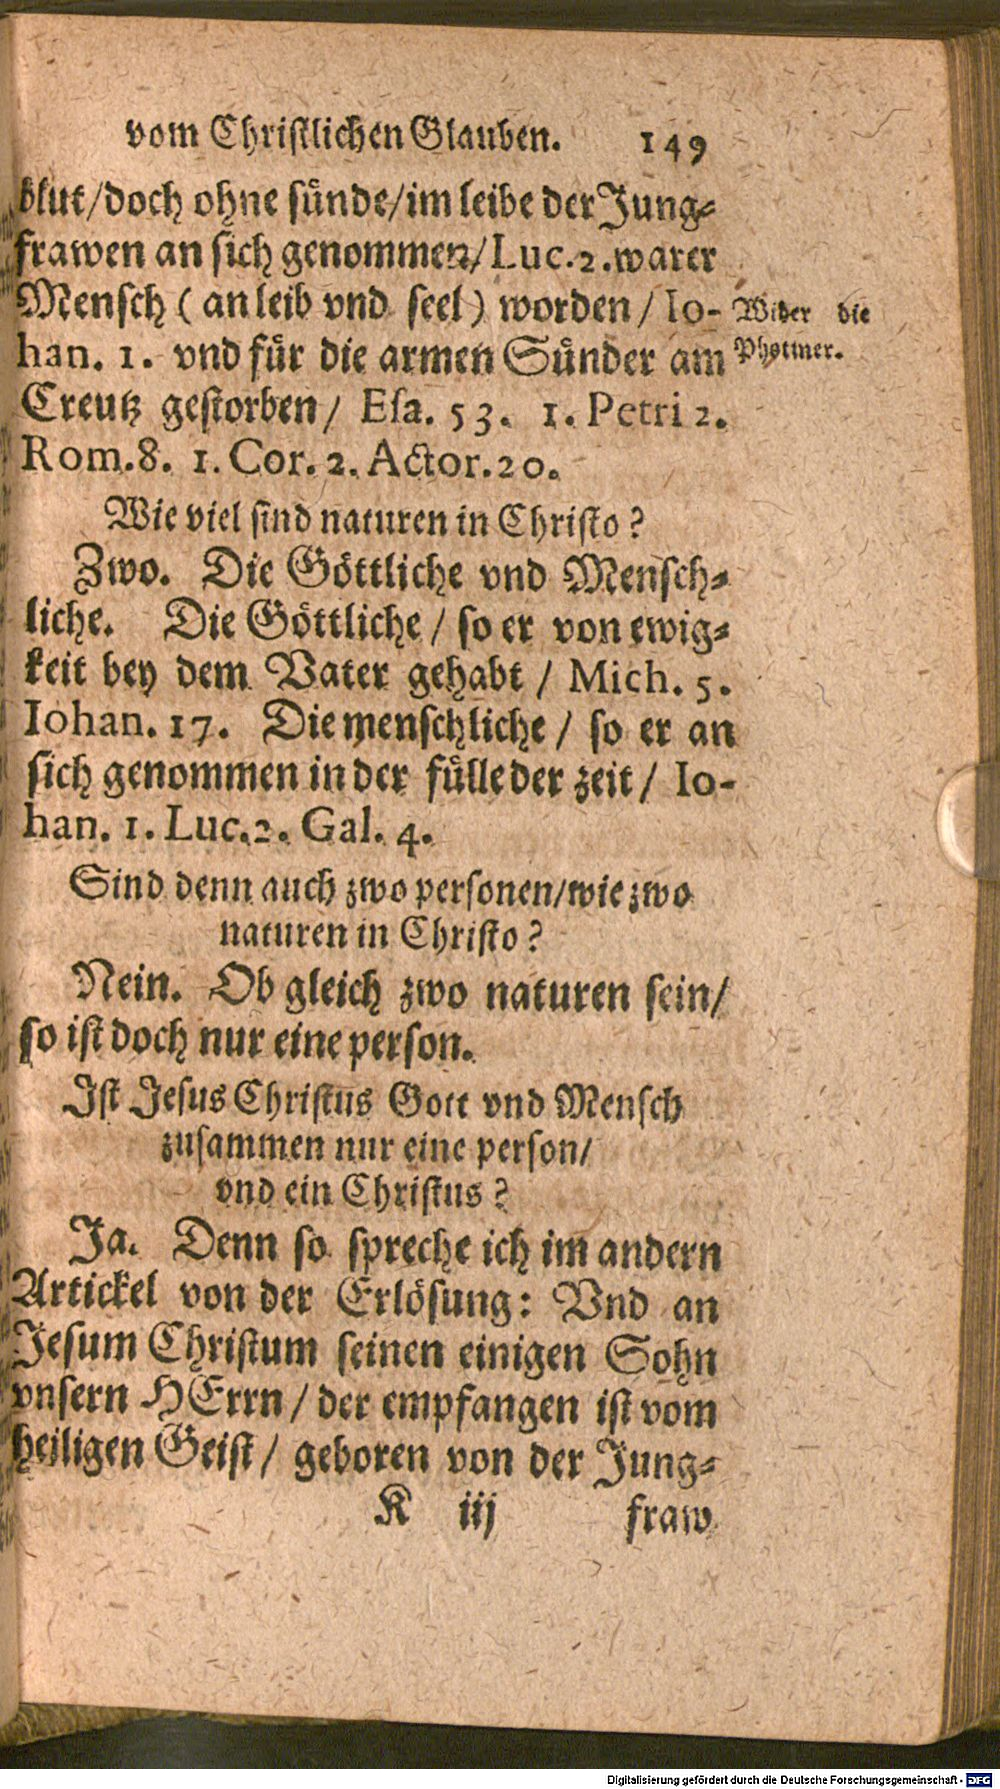 vom Christlichen Glauben. 149
blut/doch ohne sünde/im leibe der Jung⸗
frawen an sich genommen/Luc.2.warer
Mensch (an leib vnd seel) worden/ Io-
Wider die
han. 1. vnd für die armen Sünder am
Photiner.
Creutz gestorben/ Esa. 53. 1. Petri 2.
Rom.8. 1. Cor. 2. Actor.20.
Wie viel sind naturen in Christo?
Zwo. Die Göttliche vnd Mensch⸗
liche. Die Göttliche/ so er von ewig⸗
keit bey dem Vater gehabt/ Mich. 5.
Iohan. 17. Die menschliche/ so er an
sich genommen in der fülle der zeit/ Io-
han. 1. Luc.2. Gal. 4.
Sind denn auch zwo personen/wie zwo
naturen in Christo?
Nein. Ob gleich zwo naturen sein/
so ist doch nur eine person.
Ist Jesus Christus Gott vnd Mensch
zusammen nur eine person/
vnd ein Christus?
Ja. Denn so spreche ich im andern
Artickel von der Erlösung: Vnd an
Jesum Christum seinen einigen Sohn
vnsern HErrn/ der empfangen ist vom
heiligen Geist/ geboren von der Jung⸗
K iij fraw
Digitalisierung gefördert durch die Deutsche Forschungsgemeinschaft - DFG